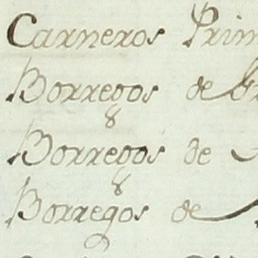 Carneros Prim
Borregos de
Borregos de
Borregos de